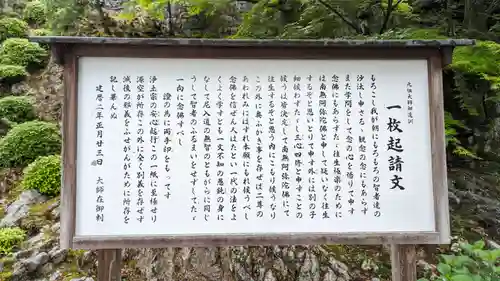 元祖大師御遺訓
一枚起請文
もろこし我が朝にもろもろの智者達の
沙汰し申さるる観念の念にもあらず
また学問をして念の心を悟りて申す
念仏にもあらずただ往生極楽のために
は南無阿弥陀仏と申して疑いなく往生
するぞと思いとりて申す外には別の子
細候わずただし三心四修と申すことの
候うは皆決定して南無阿弥陀仏にて
往生するぞと思う内にこもり候うなり
この外に奥ふかき事を存ぜば二尊の
あわれみにはずれ本願にもれ候うべし
念仏を信ぜん人はたとい一代の法をよ
くよく学すとも一文不知の愚鈍の身に
なして尼入道の無智のともがらに同じ
うして智者のふるまいをせずしてただ
一向に念仏すべし
證の為に両手印をもってす
浄土宗の安心起行この一紙に至極せり
源空が所存この外に全く別義を存ぜず
滅後の邪義をふせがんがために所存を
記し畢んぬ
建暦二年正月廿三日 大師在御判